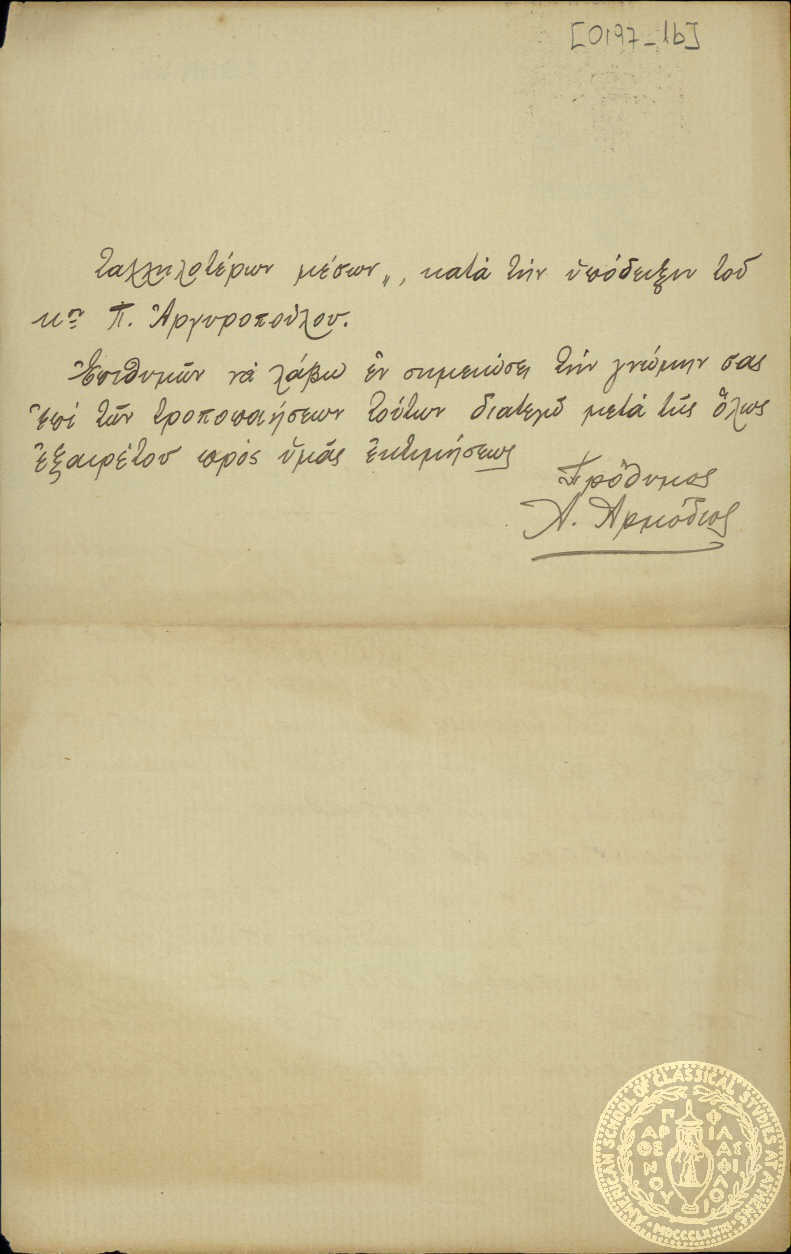 [0197_1b]
ταλληλοτέρων μέσων„, κατά τήν ὑπόδειξιν τοῦ
κου Π. Ἀργυροπούλου.
Ἐπιθυμῶν νά λάβω ἐν σημειώσει τήν γνώμην σας
ἐπί τῶν τροποποιήσεων τούτων διατελῶ μετά τῆς ὅλως
ἐξαιρέτου πρός ὑμᾶς ἐκτιμήσεως
Πρόθυμος
Α. Αρμόδιος
AMERICAN SCHOOL OF CLASSICAL STUDIES AT ATHENS
ΠΑΡΘΕΝΟΥ ΦΙΛΑΣ ΦΙΛΟΙ
MDCCCLXXXI